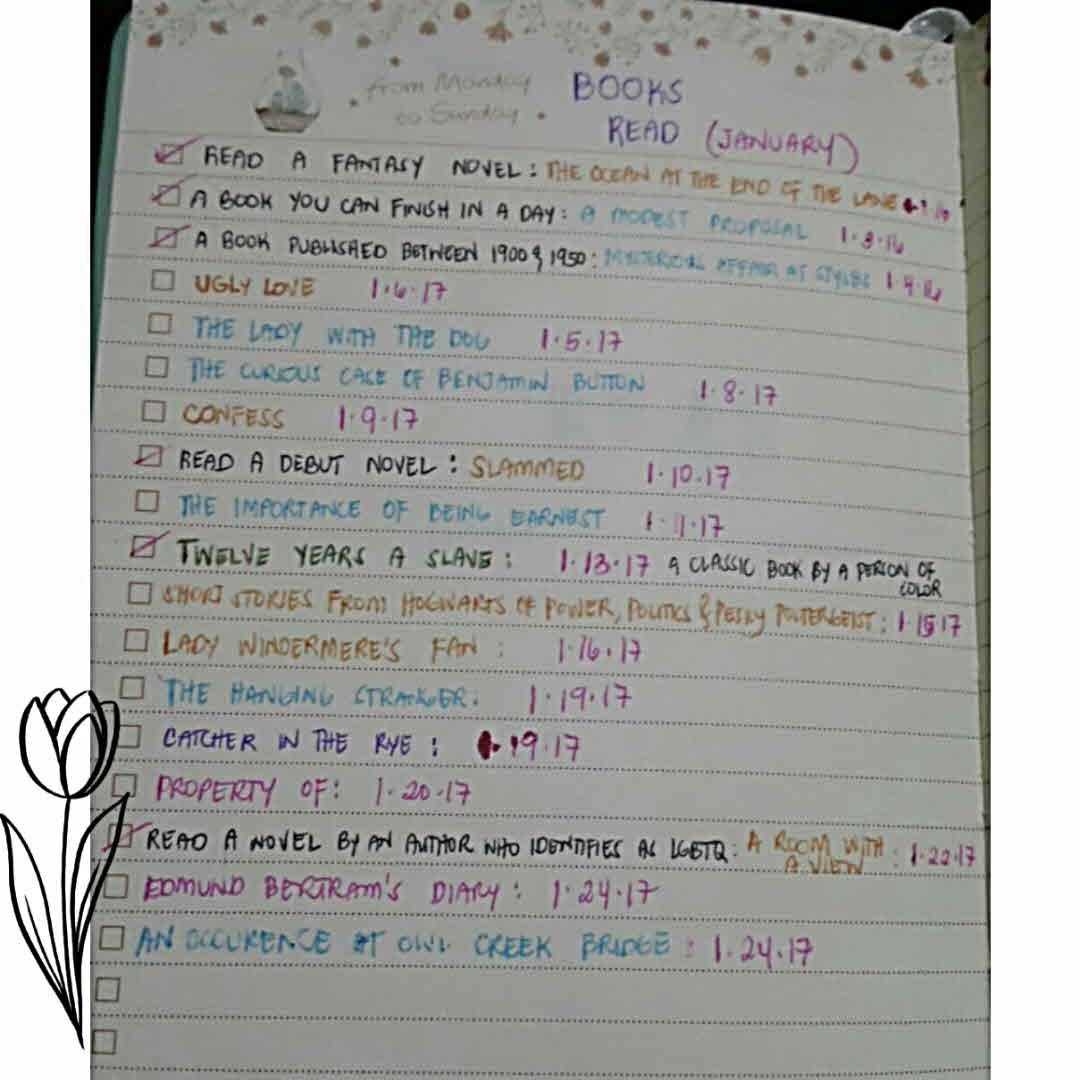 from Monday
to Sunday
BOOKS
READ (JANUARY)
READ A FANTASY NOVEL: THE OCEAN AT THE END OF THE LANE
A BOOK YOU CAN FINISH IN A DAY: A MODEST PROPOSAL 1.3.16
A BOOK PUBLISHED BETWEEN 1900 & 1950: MYSTERIOUS AFFAIR AT STYLES 1.4.16
UGLY LOVE 1.6.17
THE LADY WITH THE DOG 1.5.17
THE CURIOUS CASE OF BENJAMIN BUTTON 1.8.17
CONFESS 1.9.17
READ A DEBUT NOVEL: SLAMMED 1.10.17
THE IMPORTANCE OF BEING EARNEST 1.11.17
TWELVE YEARS A SLAVE: 1.13.17 A CLASSIC BOOK BY A PERSON OF
COLOR
SHORT STORIES FROM HOGWARTS OF POWER, POLITICS & PESKY POLTERGEIST: 1.15.17
LADY WINDERMERE'S FAN: 1.16.17
THE HANGING STRANGER: 1.19.17
CATCHER IN THE RYE: 1.19.17
PROPERTY OF: 1.20.17
READ A NOVEL BY AN AUTHOR WHO IDENTIFIES AS LGBTQ: A ROOM WITH: 1.22.17
A VIEW
EDMUND BERTRAM'S DIARY: 1.24.17
AN OCCURENCE AT OWL CREEK BRIDGE: 1.24.17